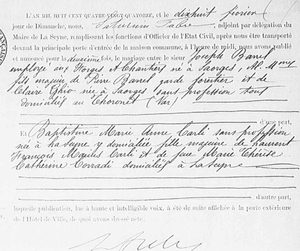 L'AN MIL HUIT CENT QUATRE-VINGT QUATORZE, et le dixhuit février
jour de Dimanche, nous, adjoint par délégation du
Maire de La Seyne, remplissant les fonctions d'Officier de l'État Civil, après nous être transporté
devant la principale porte d'entrée de la maison commune, à l'heure de midi, avons publié
et annoncé pour la fois que le mariage entre Joseph Bavel
employé aux Forges et Chantiers né à Saorges,
fils majeur de Pierre Bavel garde forestier et de
Claire Ghio née à Saorges sans profession tous
domiciliés au Thoronet (Var)
d'une part;
Et Baptistine Marie Anne Carli sans profession
née à La Seyne y domiciliée fille majeure de Laurent
François Carli et de feue Marie Thérèse
Catherine Corradi domiciliés à La Seyne
d'autre part;
laquelle publication, lue à haute et intelligible voix, a été de suite affichée à la porte extérieure
de l'Hôtel de Ville, de quoi avons dressé acte.